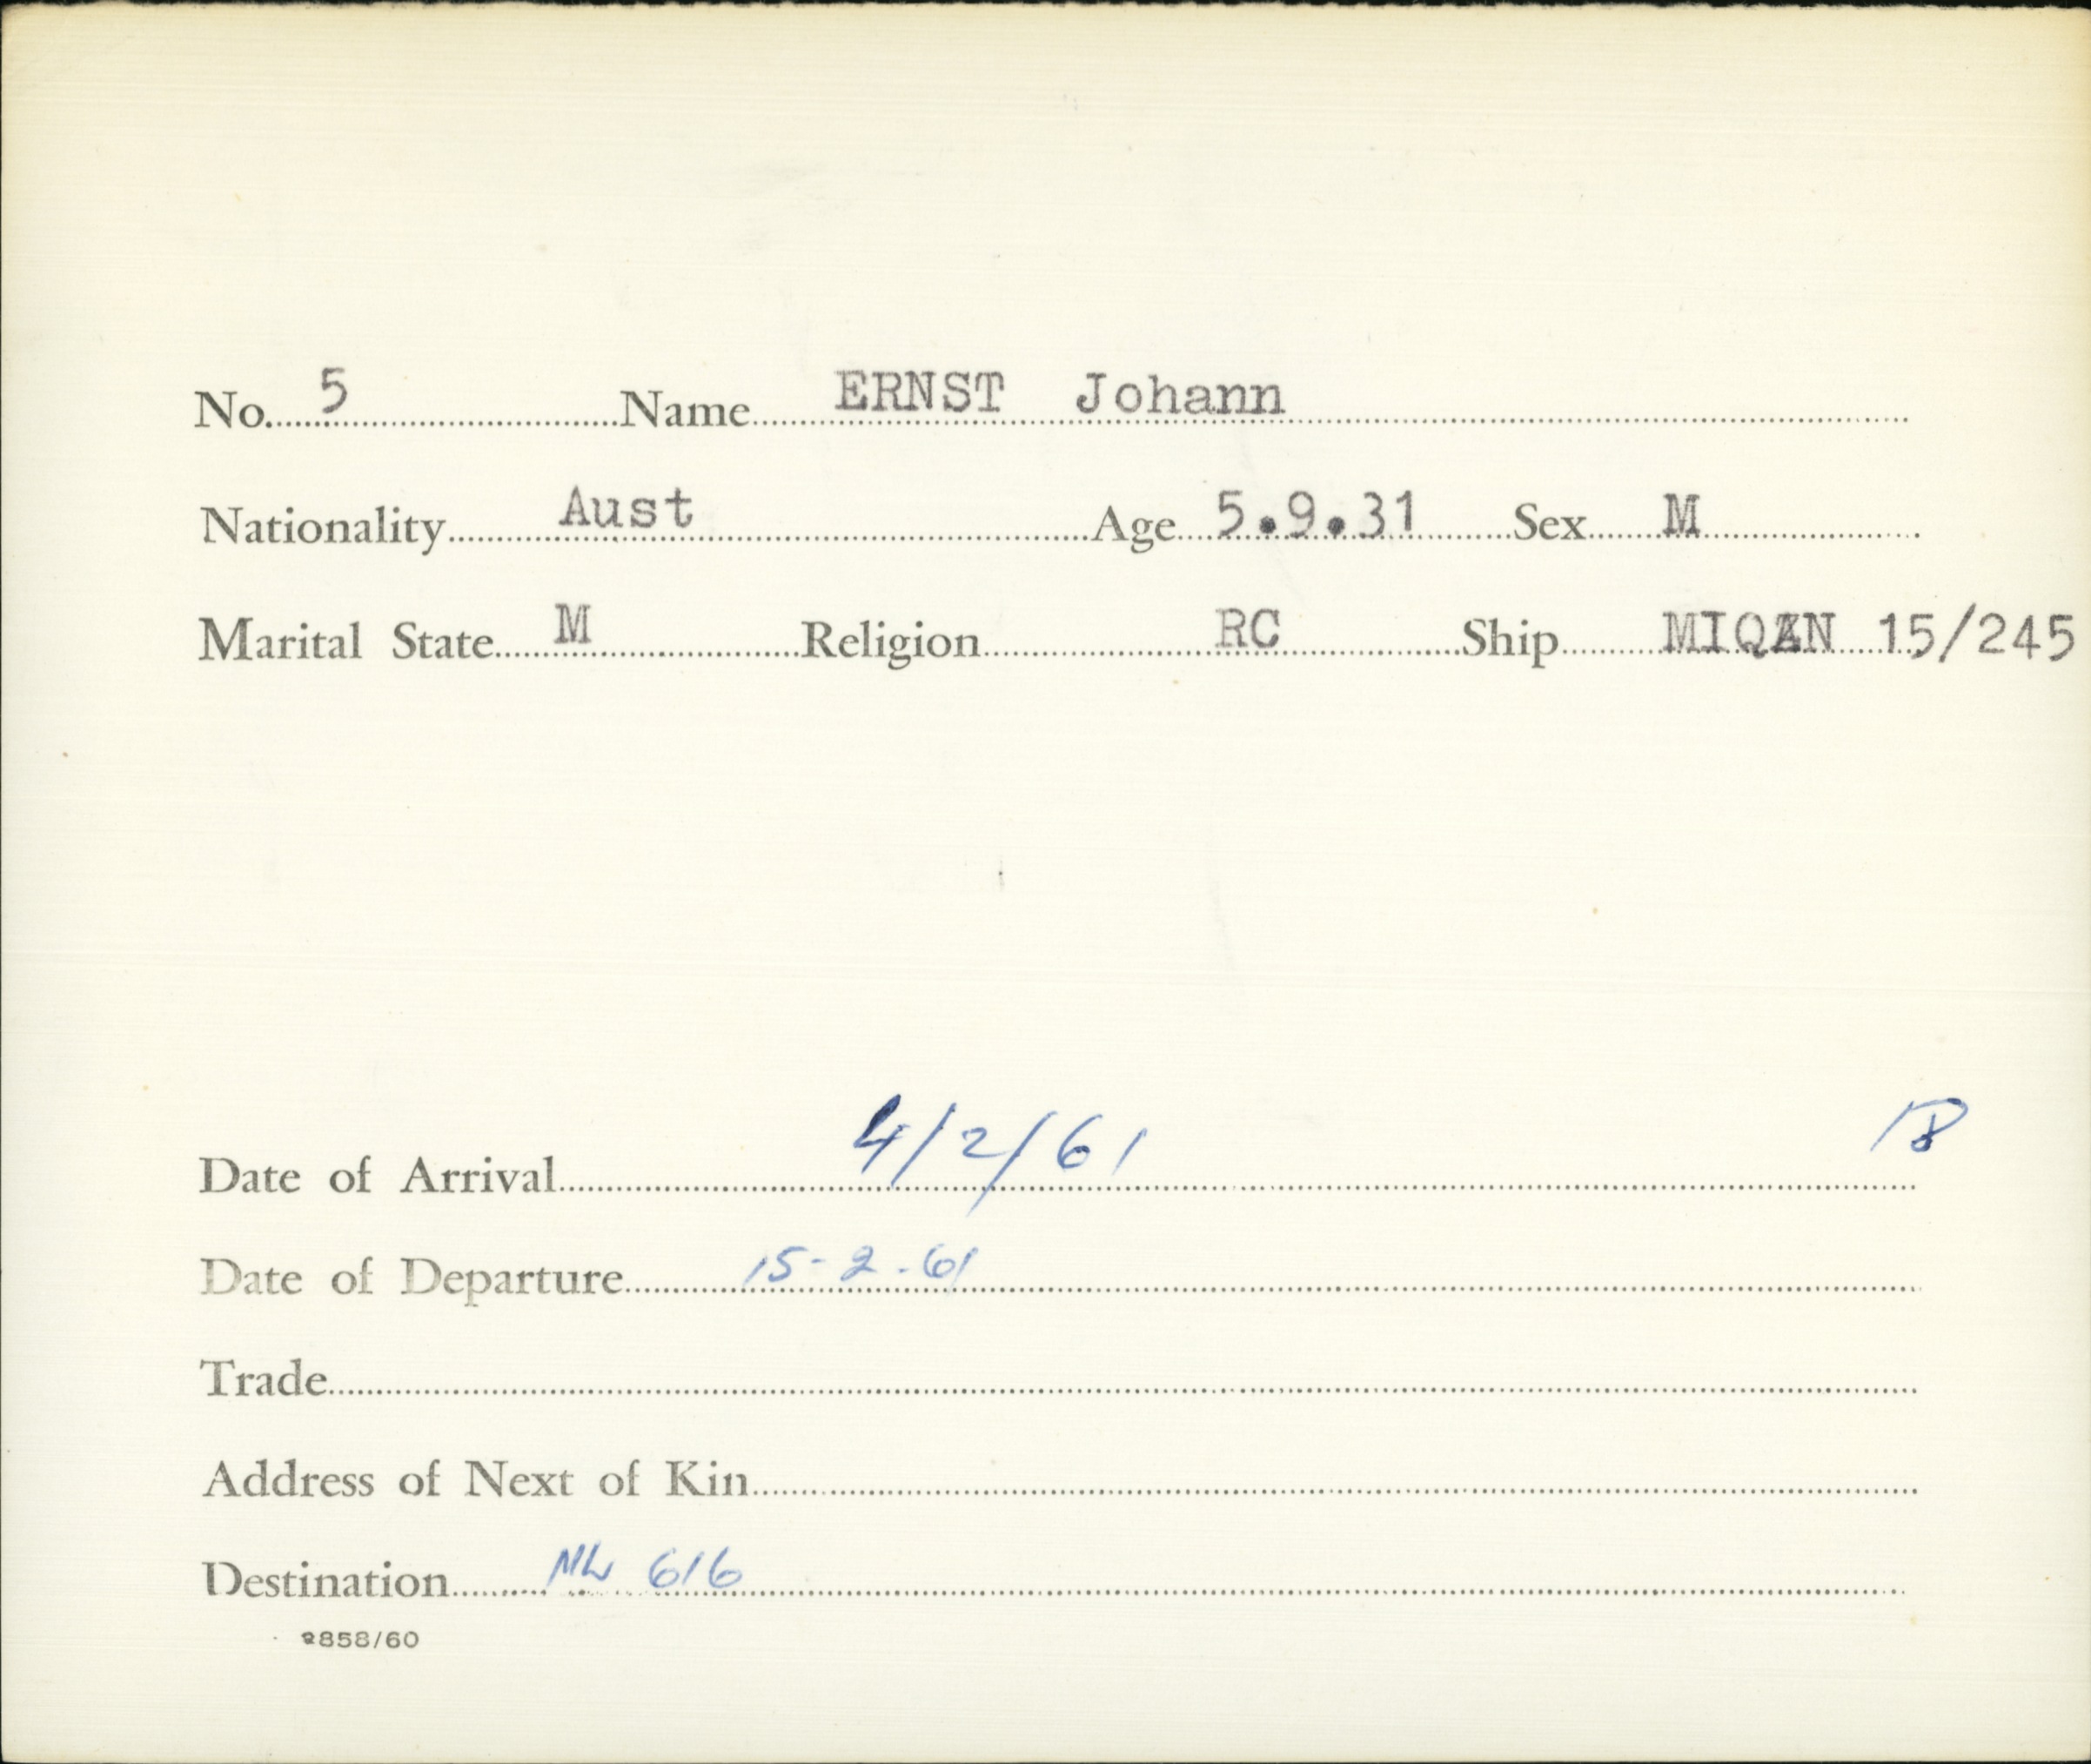 No. 5 Name ERNST Johann
Nationality Aust Age 5.9.31 Sex M
Marital State M Religion RC Ship 15/245
Date of Arrival 4/2/61
Date of Departure 15-2-61
Trade
Address of Next of Kin
Destination 616
2858/60